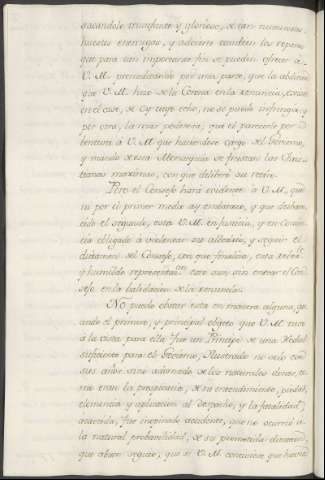 sacandole triunfante y glorioso, de tan numerosas
huestes enemigas, y advierte tambien los reparos
que para tan importante fin se pueden ofrecer à
V. M. persuadiendo por una parte, que la abdicacion
que V. M. hizo de la Corona en la renuncia,
en el caso, de cuyo no se puede infringir, y
por otra, la mas poderosa, que el parecerle por
V. M. que haciendose cargo del Govierno,
y mando de esta Monarquia se frustran las Chris-
tianas maximas, con que deliberó su retiro.
Pero el Consejo hará evidente à V. M., que
ni por el primer medio ay embarazo, y que
el segundo, está V. M. en Justicia, y en Concien-
cia obligado à violentar su alvedrio, y seguir el
dictamen del Consejo, con que finaliza, esta
y humilde representacion esto aun sin entrar el Con-
sejo en la validacion de las renuncias.
No puede obstar esta en manera alguna,
quando el primero, y principal objeto que V. M. tuvo
à la vista para ella fue un Principe de una Hedad
suficiente para el Govierno, Ilustrado no solo con
sus años sino adornado de los naturales dotes, co-
mo eran la prespicacia, de su entendimiento, piedad,
clemencia y aplicacion al Despacho, y la fatalidad,
acaecida, fue inopinado accidente, que no ocurrió à
la natural probabilidad, de su prometida duracion,
que ahora arguie, que si V. M. conociese que havia